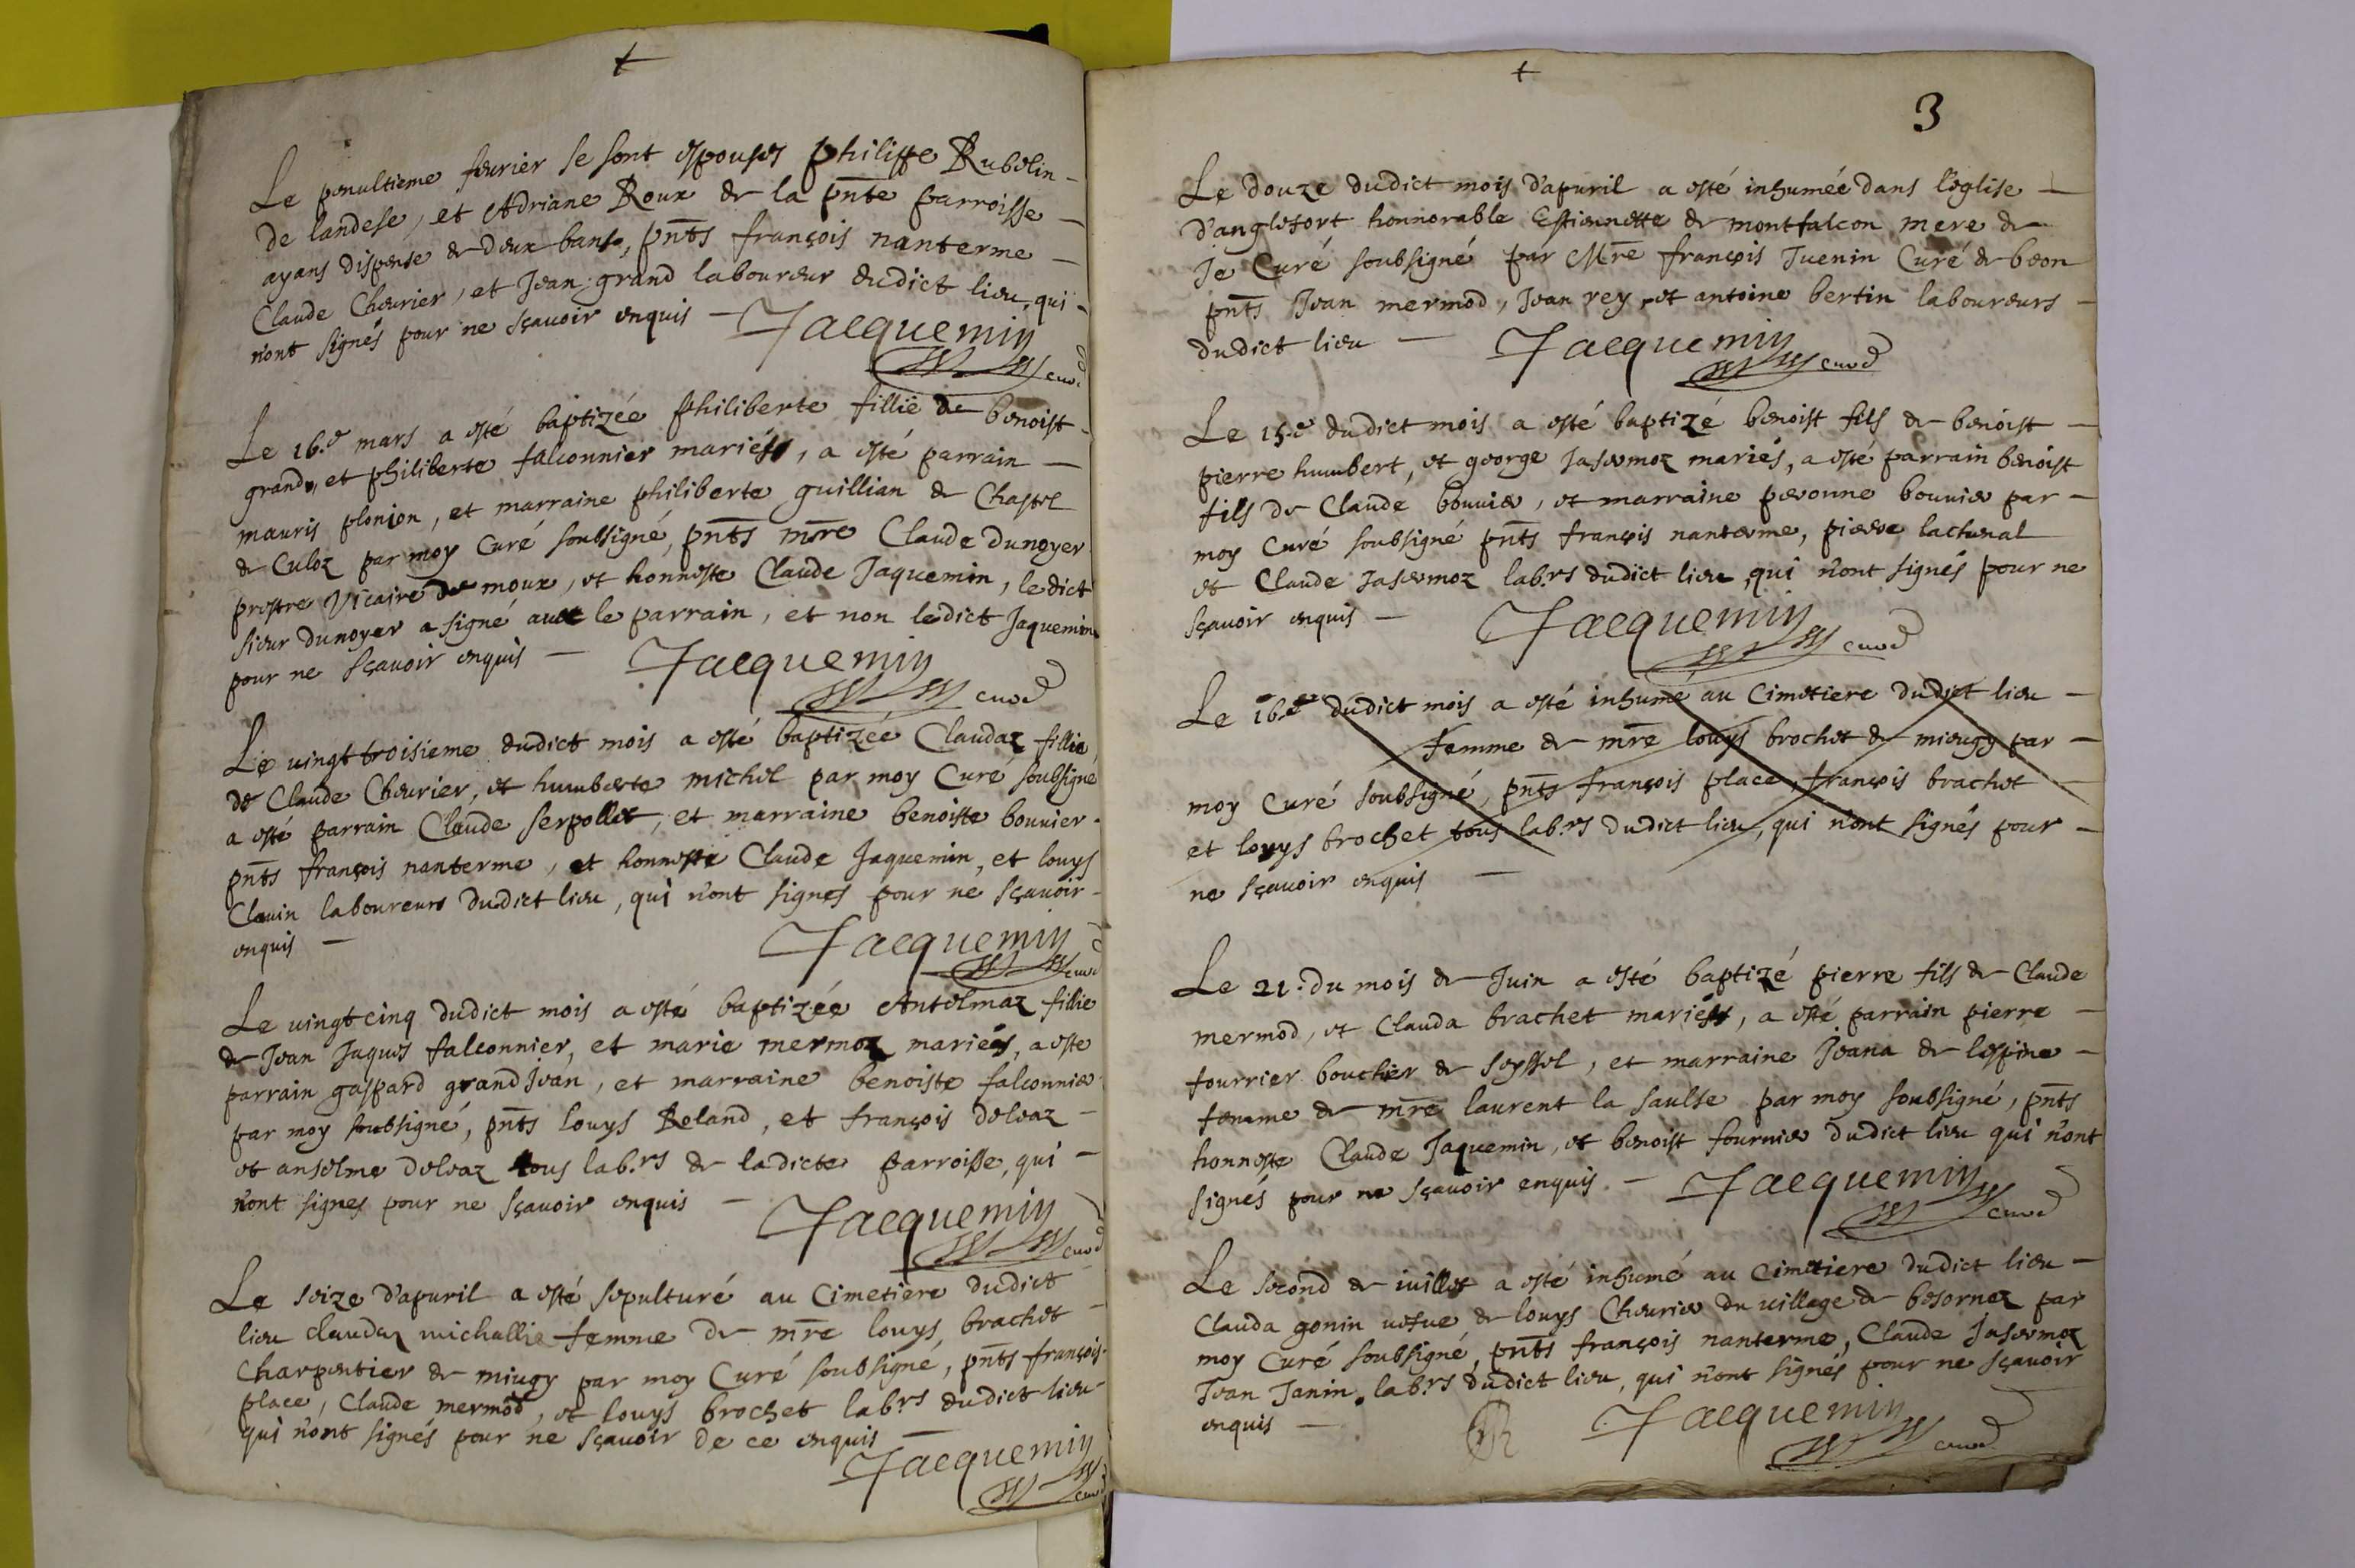 Le penultieme feurier se sont espousés philippe Rubelin -
de landese, et Adriane Roux de la pñte parroisse -
ayans dispense de deux bans, pñts françois nanterme -
Claude Cheurier, et Jean grand laboureur dudict lieu, qui -
n'ont signés pour ne sçauoir enquis - Jacquemin
curé
Le 16.e mars a esté baptizée philiberte fillie de benoist -
grand, et philiberte falconnier mariés, a esté parrain -
mauris plonion, et marraine philiberte guillian de Chastel
de Culoz par moy Curé soubsigné, pñts mre Claude dunoyer
prestre Vicaire de moux, et honneste Claude Jaquemin, ledict
sieur dunoyer a signé auec le parrain, et non ledict Jaquemin
pour ne sçauoir enquis - Jacquemin
curé
Le uingt troisieme dudict mois a esté baptizée Claudaz fillie
de Claude Cheurier, et humberte michel par moy Curé soubsigné
a esté parrain Claude serpollet, et marraine benoiste bouuier -
pñts françois nanterme, et honneste Claude Jaquemin, et louys
Clauin laboureurs dudict lieu, qui n'ont signes pour ne sçauoir -
enquis - Jacquemin
curé
Le uingt cinq dudict mois a esté baptizée Antelmaz fillie
de Jean Jaques falconnier, et marie mermoz mariés, a esté
parrain gaspard grand Jean, et marraine benoiste falconnier
par moy soubsigné, pñts louys Roland, et françois deleaz -
et anselme deleaz tous lab.rs de ladicte parroisse, qui -
n'ont signes pour ne sçauoir enquis - Jacquemin
curé
Le seize d'apuril a esté sepulturé au Cimetiere dudict -
lieu claudaz michallie femme de mre louys brachet -
Charpentier de miugy par moy Curé soubsigné, pñts françois -
place, Claude mermod, et louys brochet lab.rs dudict lieu -
qui n'ont signés pour ne sçauoir de ce enquis -
Jacquemin
curé
3
Le douze dudict mois d'apuril a esté inhumée dans l'eglise -
d'anglefort honnorable Estiennette de montfalcon mere de -
Je Curé soubsigné par Mre françois Juenin Curé de beon
pñts Jean mermod, Jean rey, et antoine bertin laboureurs -
dudict lieu - Jacquemin
curé
Le 15.e dudict mois a esté baptizé benoist fils de benoist -
pierre humbert, et george Jasermoz mariés, a esté parrain benoist
fils de Claude bouuier, et marraine peronne bouuier par -
moy Curé soubsigné pñts françois nanterme, pierre lachenal
et Claude Jasermoz lab.rs dudict lieu, qui n'ont signés pour ne
sçauoir enquis - Jacquemin
curé
Le 16.e dudict mois a esté inhumé au Cimetiere dudict lieu -
femme de mre louys brochet de mieugy par -
moy Curé soubsigné, pñts françois place, françois brachet -
et louys brochet tous lab.rs dudict lieu, qui n'ont signés pour -
ne sçauoir enquis -
Le 21. du mois de Juin a esté baptizé pierre fils de Claude
mermod, et Clauda brachet mariés, a esté parrain pierre -
fourrier boucher de seyssel, et marraine Jeana de lespine -
femme de mre laurent la saulse par moy soubsigné, pñts
honneste Claude Jaquemin, et benoist fournier dudict lieu qui n'ont
signés pour ne sçauoir enquis. - Jacquemin
curé
Le second de iuillet a esté inhumé au Cimetiere dudict lieu -
Clauda gonin uefue de louys Cheurier du uillage de besornez par
moy Curé soubsigné, pñts françois nanterme, Claude Jasermoz
Jean Janin lab.rs dudict lieu, qui n'ont signés pour ne sçauoir
enquis - Jacquemin
curé